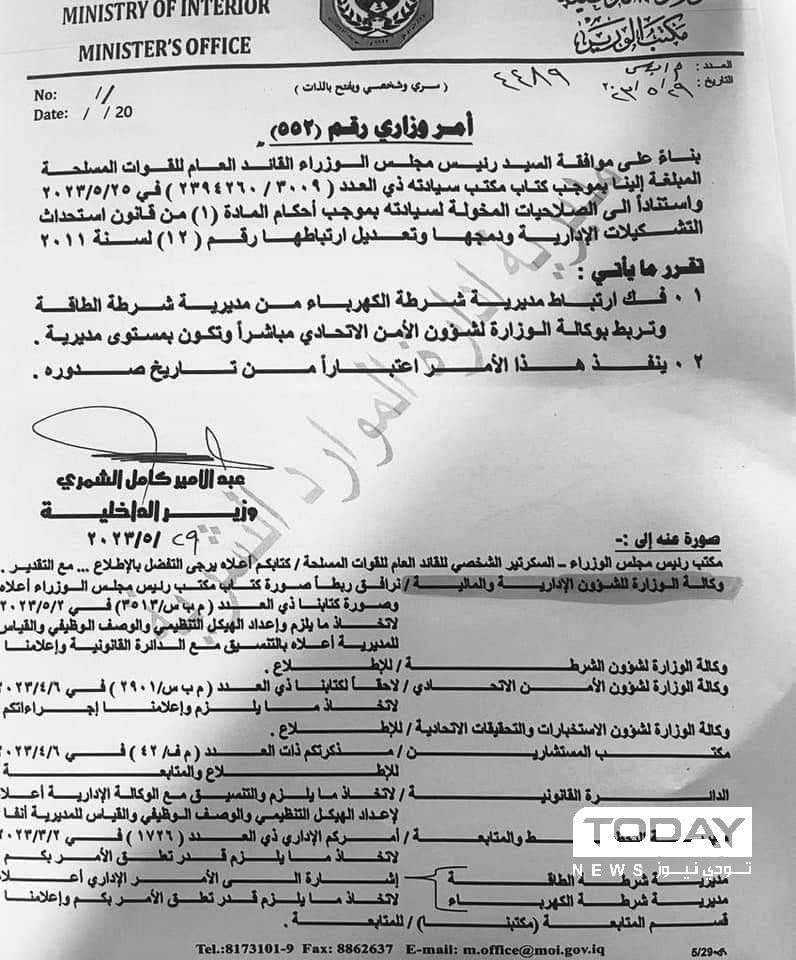 MINISTRY OF INTERIOR
MINISTER'S OFFICE
مكتب الوزير
No: / /
Date: / / 20
( سري وشخصي ويفتح بالذات )
العدد :
٤٤٨٩
التاريخ : ٢٠٢٣/٥/٢٩
أمر وزاري رقم (٥٥٢)
بناءً على موافقة السيد رئيس مجلس الوزراء القائد العام للقوات المسلحة
المبلغة إلينا بموجب كتاب مكتب سيادته ذي العدد ( ٣٠٠٩ / ٢٣٩٤٢٦٠ ) في ٢٠٢٣/٥/٢٥
واستناداً الى الصلاحيات المخولة لسيادته بموجب أحكام المادة (١) من قانون استحداث
التشكيلات الإدارية ودمجها وتعديل ارتباطها رقم (١٢) لسنة ٢٠١١
تقرر ما يأتي :
١ ٠ فك ارتباط مديرية شرطة الكهرباء من مديرية شرطة الطاقة
وتربط بوكالة الوزارة لشؤون الأمن الاتحادي مباشراً وتكون بمستوى مديرية .
٢ ٠ ينفذ هذا الأمر اعتباراً من تاريخ صدوره .
مديرية ادارة الموارد البشرية
عبد الامير كامل الشمري
وزير الداخلية
٢٩ /٢٠٢٣/٥
صورة عنه إلى :-
مكتب رئيس مجلس الوزراء – السكرتير الشخصي للقائد العام للقوات المسلحة / كتابكم أعلاه يرجى التفضل بالإطلاع ... مع التقدير .
وكالة الوزارة للشؤون الإدارية والمالية / نرافق ربطاً صورة كتاب مكتب رئيس مجلس الوزراء أعلاه
وصورة كتابنا ذي العدد ( م ب س/٣٥١٣) في ٢٠٢٣/٥/٢
لاتخاذ ما يلزم وإعداد الهيكل التنظيمي والوصف الوظيفي والقياس
للمديرية أعلاه بالتنسيق مع الدائرة القانونية وإعلامنا
وكالة الوزارة لشؤون الشرطة / للإطلاع .
وكالة الوزارة لشؤون الأمن الاتحادي / لاحقاً لكتابنا ذي العدد ( م ب س/٢٩٠١ ) في ٢٠٢٣/٤/٦
لاتخاذ ما يلزم وإعلامنا إجراءاتكم
وكالة الوزارة لشؤون الاستخبارات والتحقيقات الاتحادية / للإطلاع .
مكتب المستشارين / مذكرتكم ذات العدد ( م ف/ ٤٢ ) في ٢٠٢٣/٤/٦
للإطلاع والمتابعة
الدائرة القانونية / لاتخاذ ما يلزم والتنسيق مع الوكالة الإدارية أعلا
لإعداد الهيكل التنظيمي والوصف الوظيفي والقياس للمديرية أنفا
والمتابعة / أمركم الإداري ذي العدد (١٧٢٦ ) في ٢٠٢٣/٣/٢
لاتخاذ ما يلزم قدر تعلق الأمر بكم
مديرية شرطة الطاقة إشارة الى الأمر الإداري أعلا
مديرية شرطة الكهرباء لاتخاذ ما يلزم قدر تعلق الأمر بكم وإعلامنا
قسم المتابعة (مكتبنا) / للمتابعة .
TODAY
NEWS تودي نيوز
Tel.:8173101-9 Fax: 8862637 E-mail: m.office@moi.gov.iq
5/29